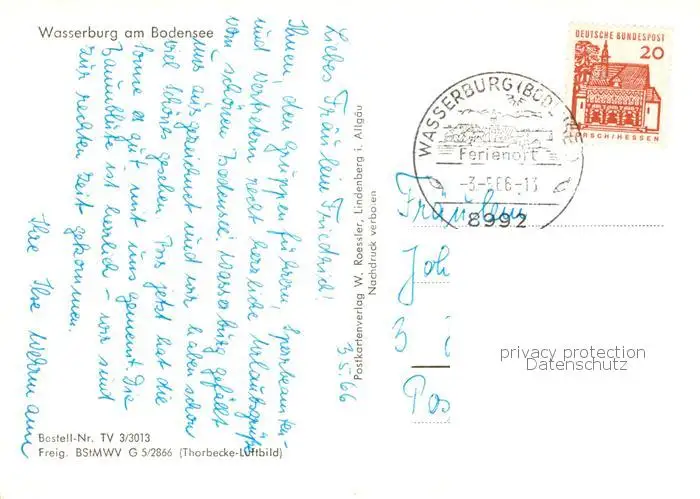 Wasserburg am Bodensee
3.5.66
Liebes Fräulein Friedrich!
Ihnen, den Gruppenführern, Sportbeamten-
und Vertretern recht herzliche Urlaubsgrüße
vom schönen Bodensee. Wasserburg gefällt
uns ausgezeichnet und wir haben schon
viel Schönes gesehen. Bis jetzt hat die
Sonne es gut mit uns gemeint. Die
Baumblüte ist herrlich - wir sind
zur rechten Zeit gekommen.
Ihre Ilse
Bestell-Nr. TV 3/3013
Freig. BStMWV G 5/2866 (Thorbecke-Luftbild)
Postkartenverlag W. Roessler, Lindenberg i. Allgäu
Nachdruck verboten
DEUTSCHE BUNDESPOST
20
LORSCH/HESSEN
WASSERBURG (BODENSEE)
Ferienort
-3-5.66-13
8992
Fräulein
Joh
3
Pos
privacy protection
Datenschutz